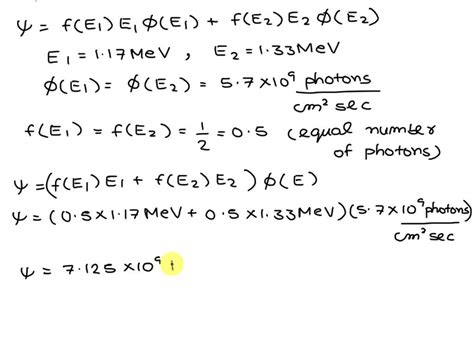 Ψ = f(E₁) E₁ φ(E₁) + f(E₂) E₂ φ(E₂)
E₁ = 1.17 MeV , E₂ = 1.33 MeV
φ(E₁) = φ(E₂) = 5.7 × 10⁹ photons / cm² sec
f(E₁) = f(E₂) = 1/2 = 0.5 (equal number of photons)
Ψ = (f(E₁) E₁ + f(E₂) E₂) φ(E)
Ψ = (0.5 × 1.17 MeV + 0.5 × 1.33 MeV) (5.7 × 10⁹ photons / cm² sec
Ψ = 7.125 × 10⁹